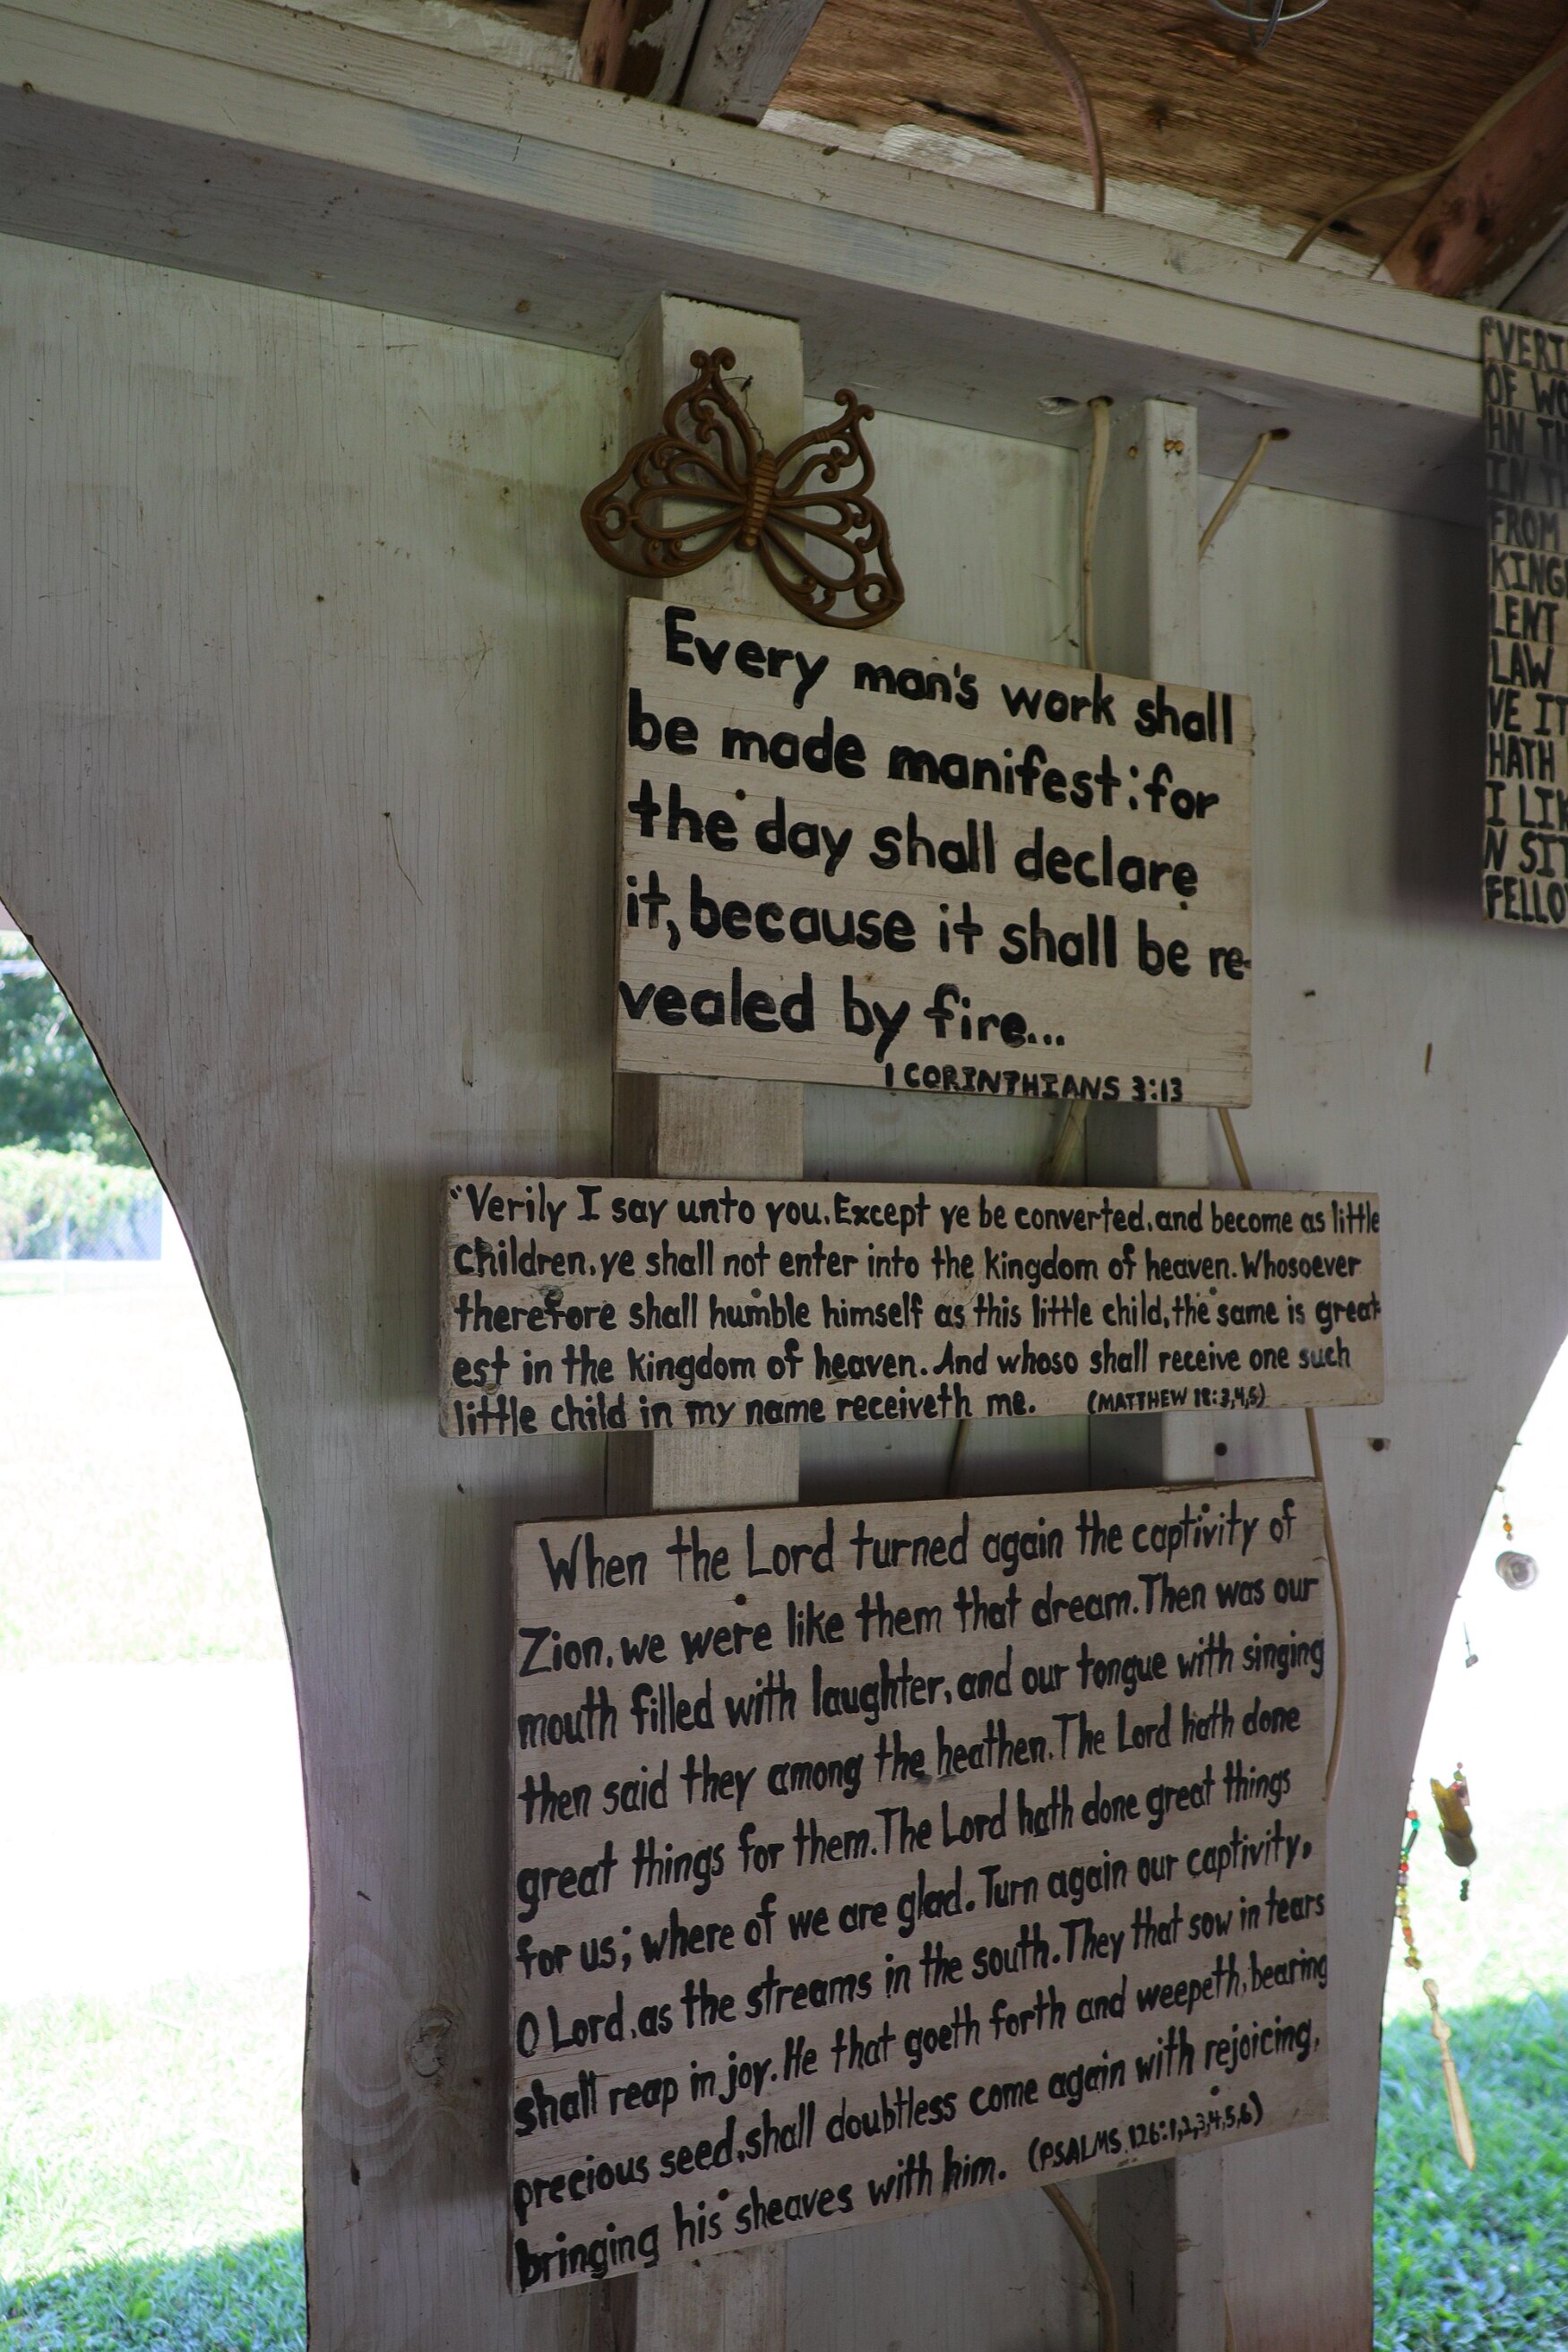 Every man's work shall
be made manifest: for
the day shall declare
it, because it shall be re-
vealed by fire...
1 CORINTHIANS 3:13
"Verily I say unto you, Except ye be converted, and become as little
children, ye shall not enter into the kingdom of heaven. Whosoever
therefore shall humble himself as this little child, the same is great-
est in the kingdom of heaven. And whoso shall receive one such
little child in my name receiveth me. (MATTHEW 18:3,4,5)
When the Lord turned again the captivity of
Zion, we were like them that dream. Then was our
mouth filled with laughter, and our tongue with singing
then said they among the heathen. The Lord hath done
great things for them. The Lord hath done great things
for us; where of we are glad. Turn again our captivity,
O Lord, as the streams in the south. They that sow in tears
shall reap in joy. He that goeth forth and weepeth, bearing
precious seed, shall doubtless come again with rejoicing,
bringing his sheaves with him. (PSALMS 126:1,2,3,4,5,6)
"VERI
OF WO
HN TH
IN TH
FROM
KING
LENT
LAW
VE IT
HATH
I LIK
N SIT
FELLO